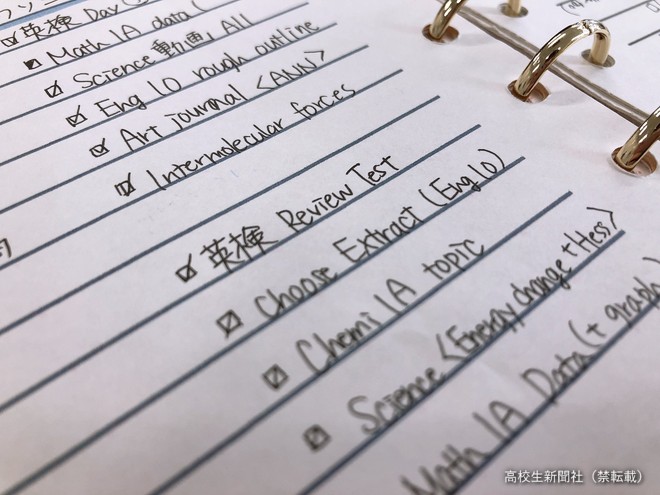 ☑英検 Day
☑ Math IA data (
☑ Science 動画, All
☑ Eng IO rough outline
☑ Art journal <ANN>
☑ Intermolecular forces
☑ 英検 Review Test
☑ Choose Extract (Eng IO)
☑ Chem IA topic
☑ Science <Energy change + Hess>
Math IA Data (+ graph)
高校生新聞社（禁転載）